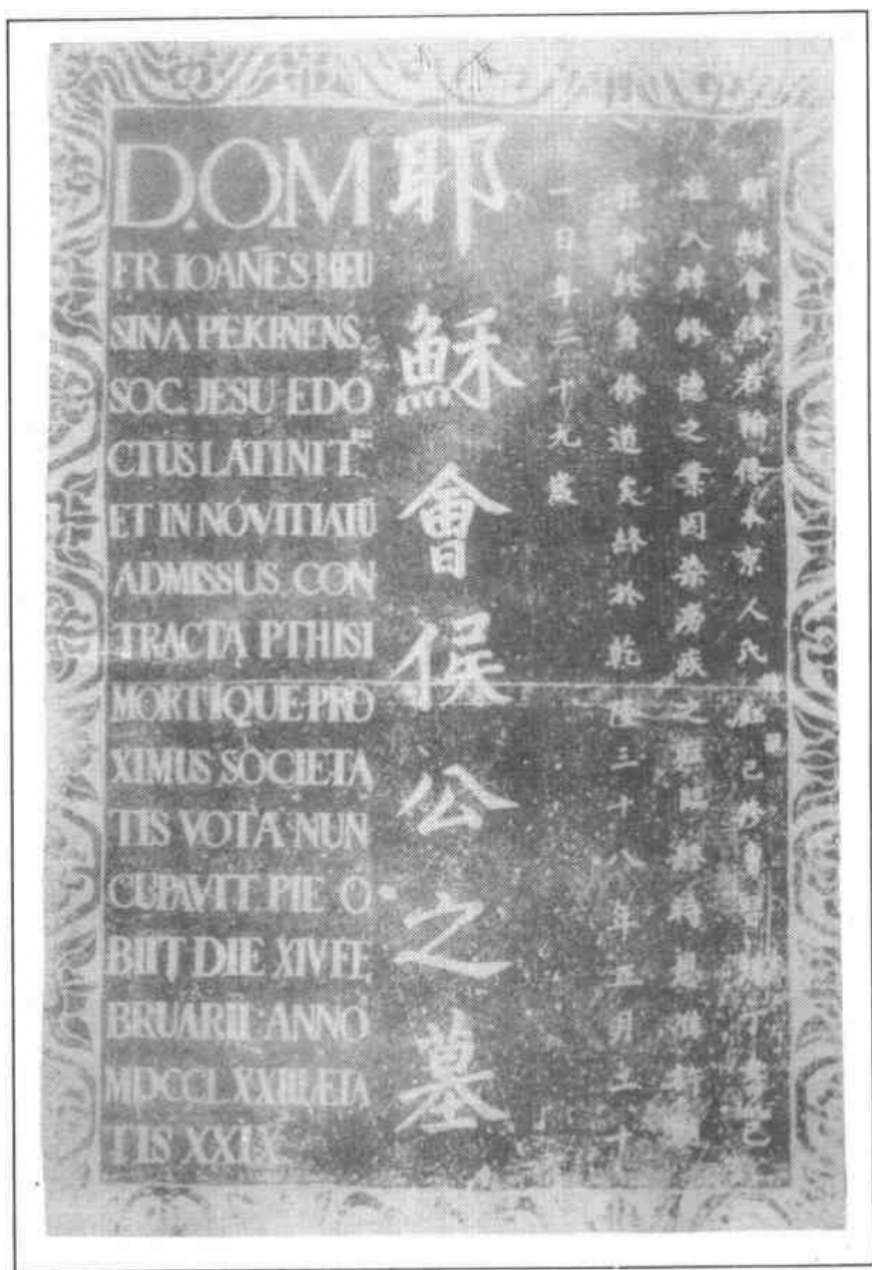 D.O.M
FR. IOANES HEU
SINA PEKINENS.
SOC. JESU EDO
CTUS LATINIT.
ET IN NOVITIATŪ
ADMISSUS. CON
TRACTA PTHISI
MORTIQUE PRO
XIMUS SOCIETA
TIS VOTA NUN
CUPAVIT PIE O
BIIT DIE XIV FE
BRUARII ANNO
MDCCLXXIII ÆTA
TIS XXIX
耶穌會侯公之墓
會侯若翰係本京人氏
修德之業因染癆疾之
會終身修道矣終於乾隆三十八年正月二十
一日年二十九歲